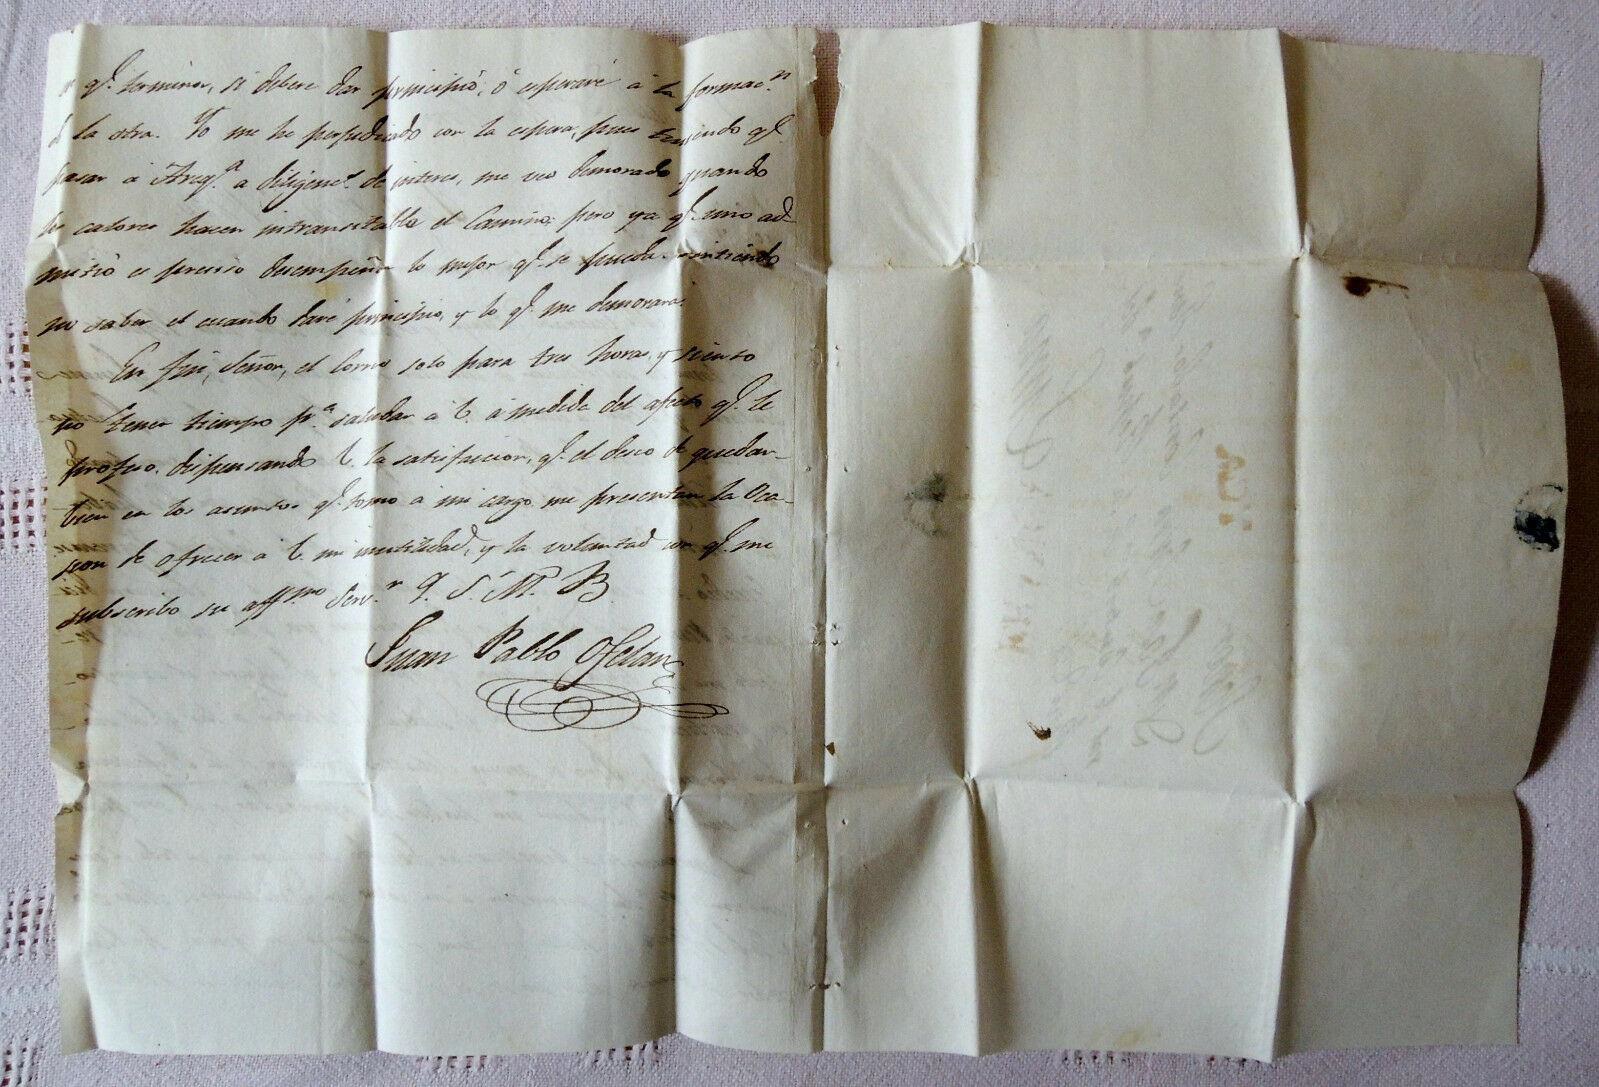 q.e terminar, si debere dar principio, ó esperaré á la formac.n
d la otra. Yo me he perjudicado con la espera, pues teniendo q.e
pasar á Areq.a a diligenc.s de interes, me veo demorado quando
los calores hacen intransitable el Camino; pero ya q.e uno ad
mitió es preciso desempeñar lo mejor q.e se pueda. sintiendo
no saber el cuando daré principio, y lo q.e me demorara.
En fin, Señor, el Correo solo para tres horas, y siento
no tener tiempo p.a saludar á V. á medida del afecto q.e le
profeso. dispensando V. la satisfaccion, q.e el deseo de quedar
bien en los asuntos q.e tomo á mi cargo me presentan la Oca-
sion de ofrecer á V. mi inutilidad, y la voluntad con q.e me
subscribo su aff.mo Serv.r Q. S. M. B.
Juan Pablo Ofelan